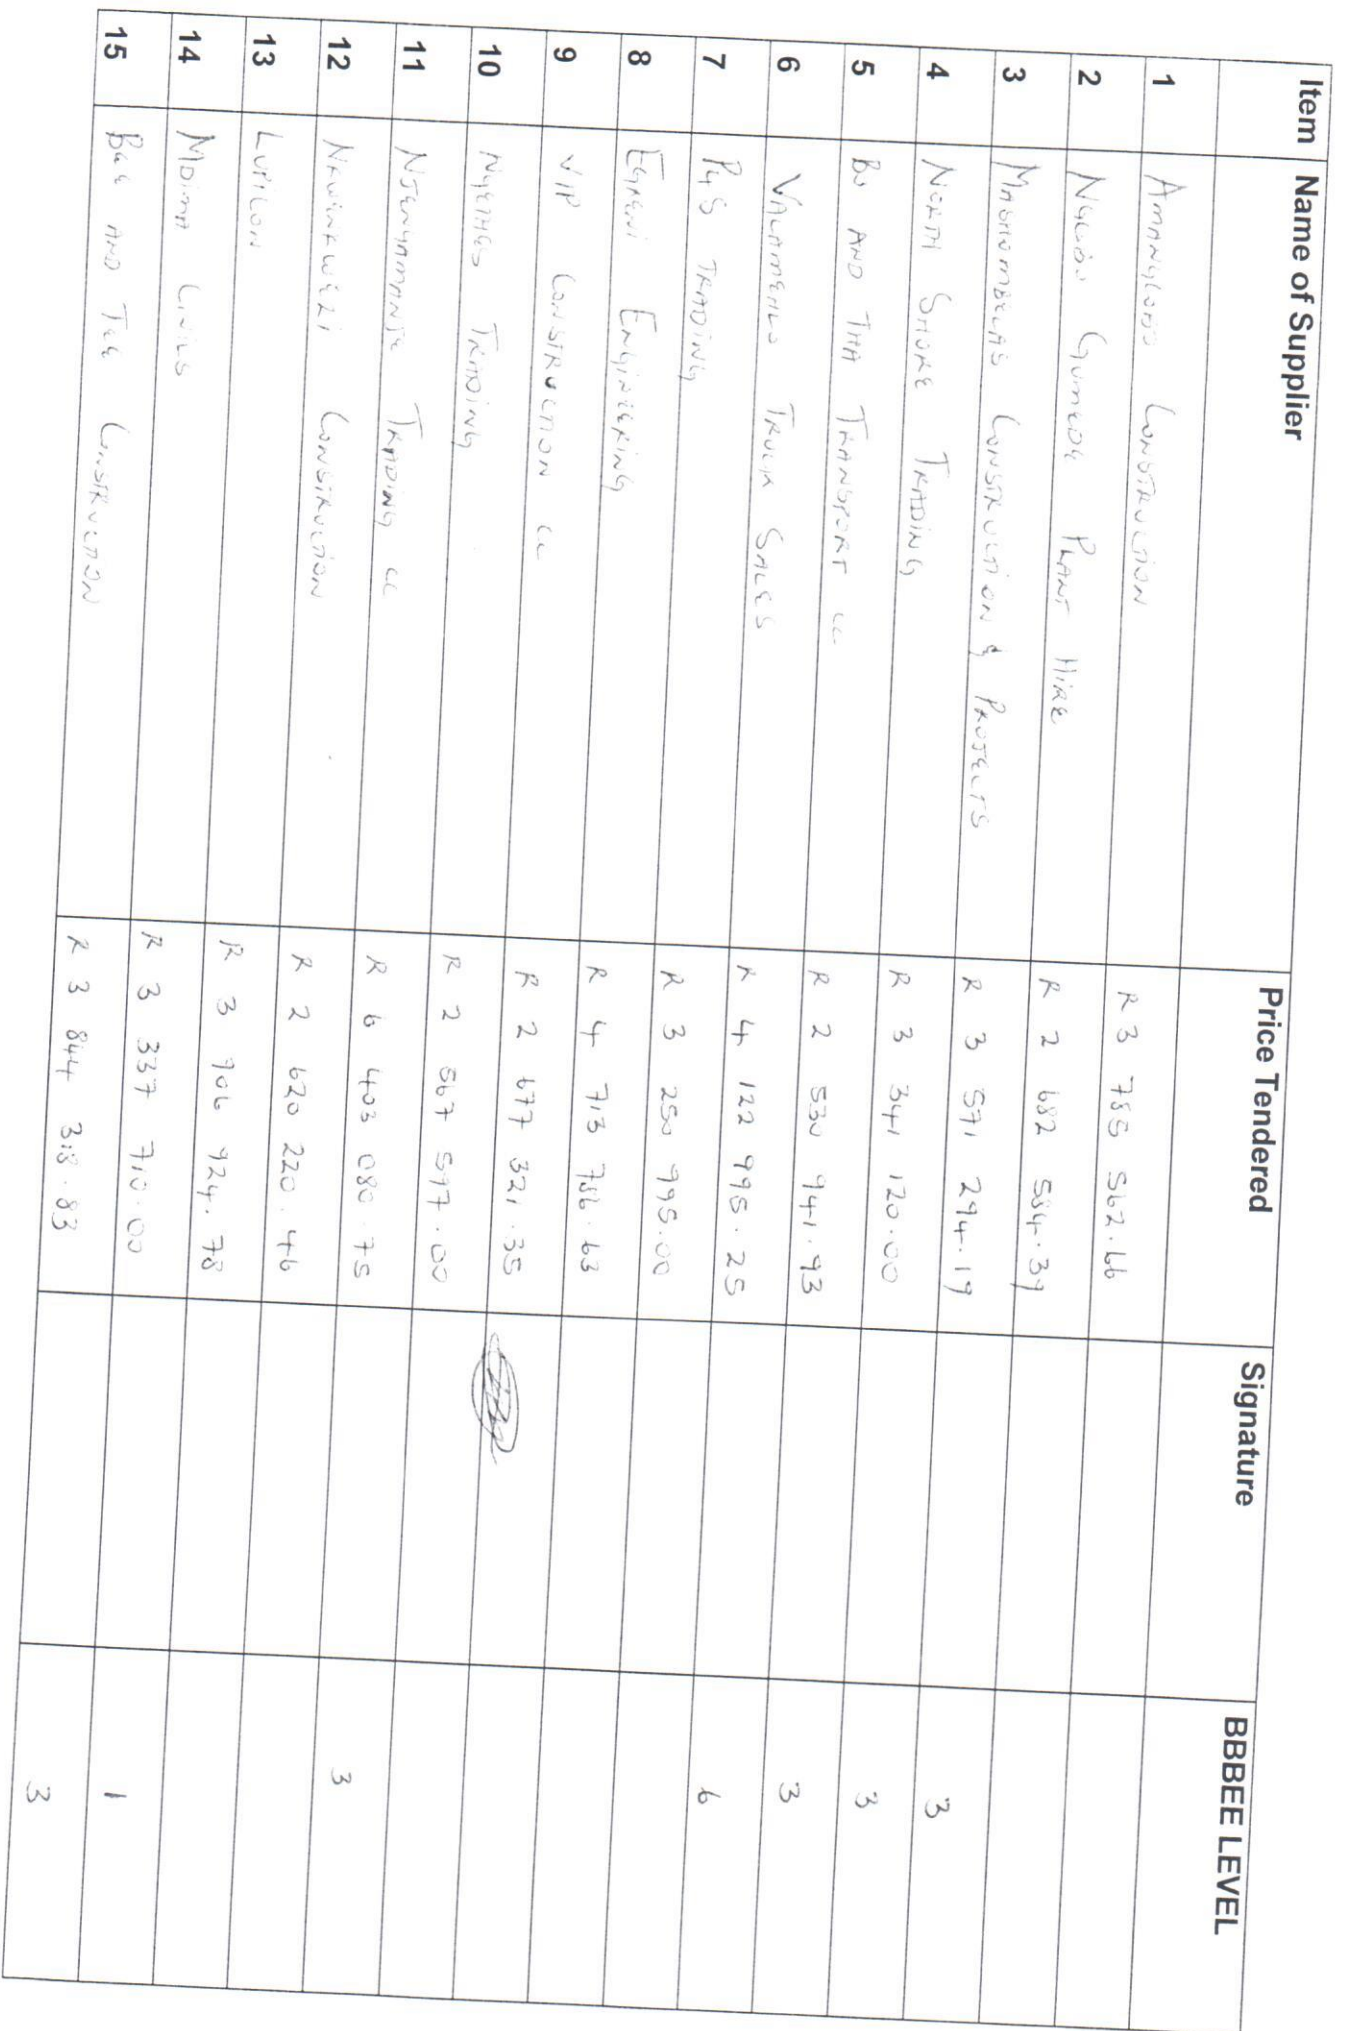 Item Name of Supplier Price Tendered Signature BBBEE LEVEL
1 CONSTRUCTION R 3 785 562.66
2 GUMEDE PLANT HIRE R 2 682 584.39
3 CONSTRUCTION & PROJECTS R 3 571 294.19 3
4 NORTH SHORE TRADING R 3 341 120.00 3
5 BO AND THA TRANSPORT CC R 2 530 941.93 3
6 TRUCK SALES R 4 122 995.25 6
7 TRADING R 3 250 995.00
8 ENGINEERING R 4 713 786.63
9 VIP CONSTRUCTION CC R 2 677 321.35
10 TRADING R 2 567 597.00
11 TRADING CC R 6 403 080.75 3
12 CONSTRUCTION R 2 620 220.46
13 R 3 906 924.78
14 CIVILS R 3 337 710.00 1
15 BEE AND TEE CONSTRUCTION R 3 844 318.83 3